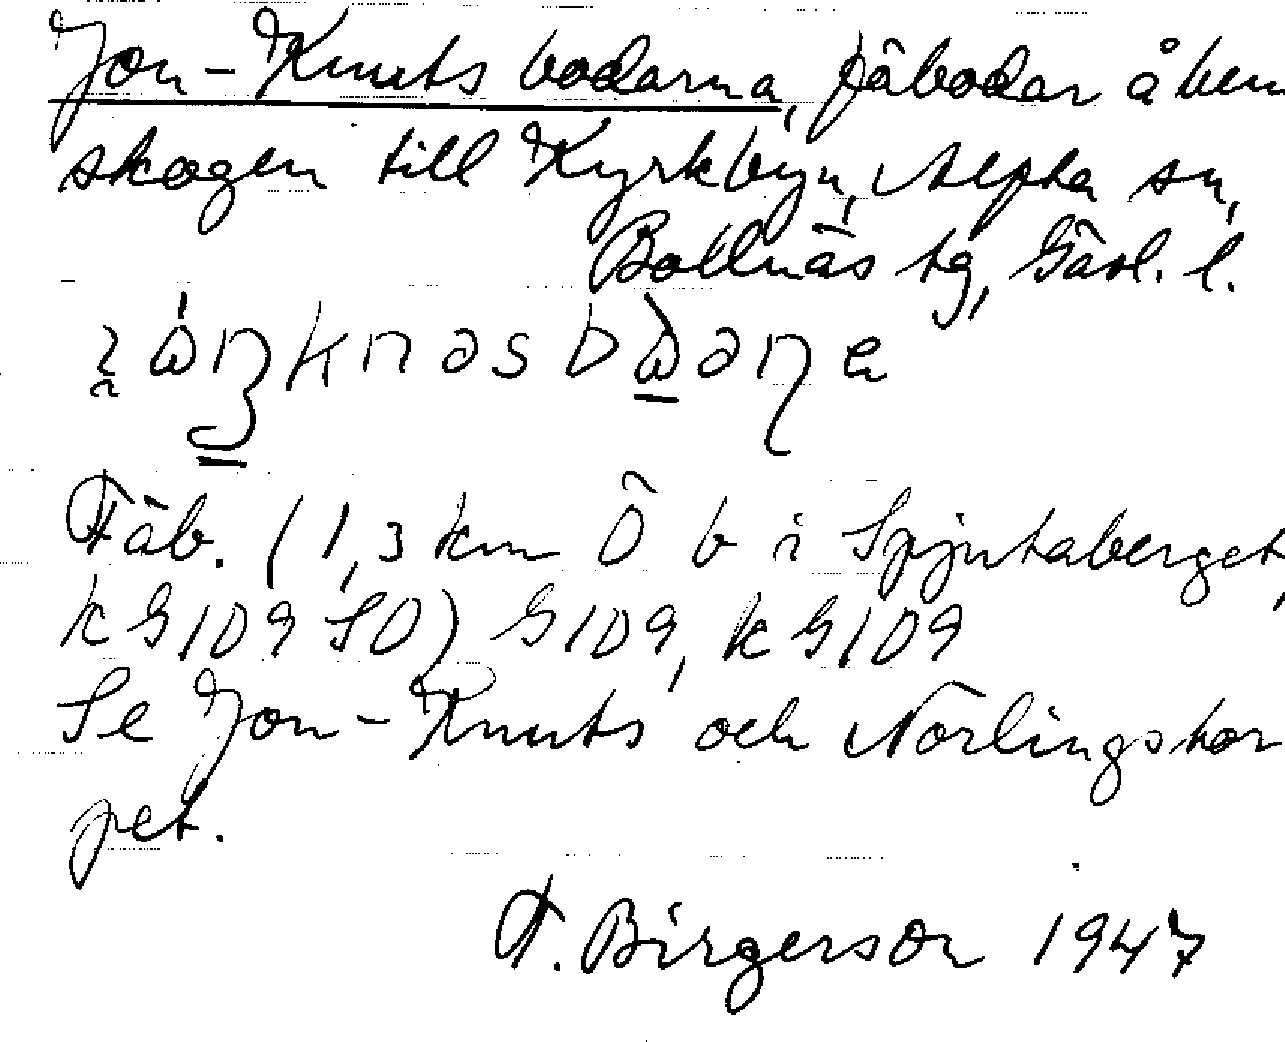 Jon-Knutsbodarna, fäbodar å hem
skogen till Kyrkbyn, Alfta sn,
Bollnäs tg, Gävl. l.
Fäb. (1,3 km Ö b i Spjutaberget,
k G109 SO) G109, k G109
Se Jon-Knuts och Norlingstor
pet.
F. Birgerson 1947